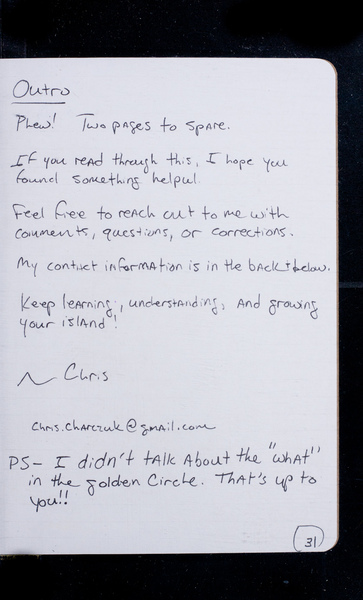 Outro
Phew! Two pages to spare.
If you read through this, I hope you
found something helpul.
Feel free to reach out to me with
comments, questions, or corrections.
My contact information is in the back + below.
Keep learning, understanding, and growing
your island!
~ Chris
chris.charczuk@gmail.com
PS- I didn't talk about the "what"
in the golden circle. That's up to
you!!
31